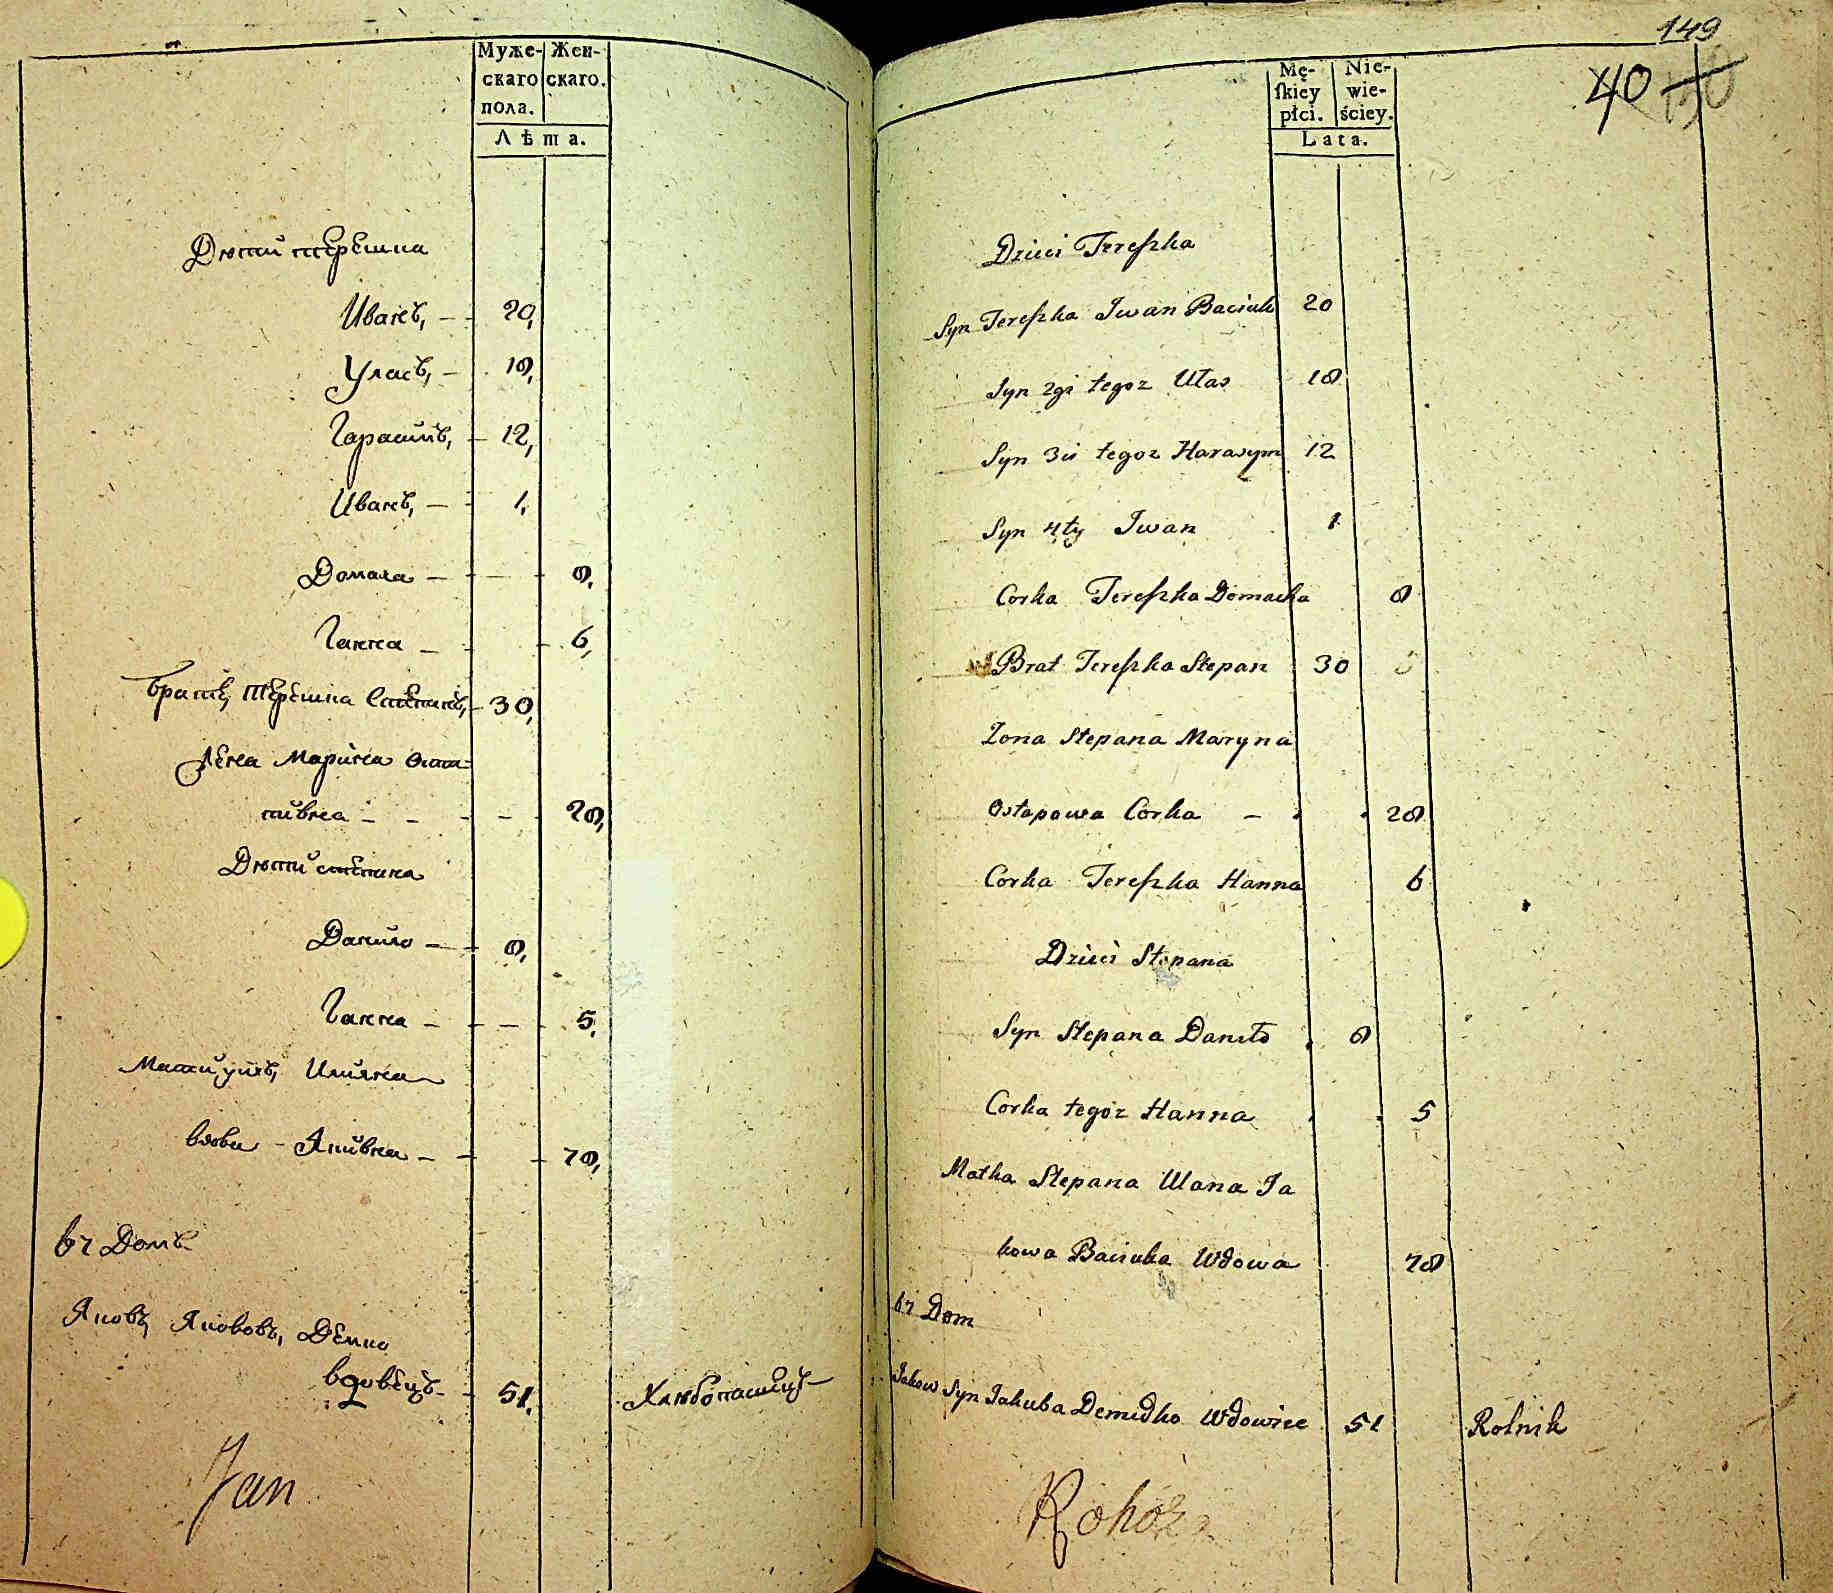 Муже- Жен-
скаго скаго.
пола.
Лѣта.
Дѣти терешка
Иванъ, 20,
Уласъ, 18,
Гарасимъ, 12,
Иванъ, 1,
Домаха 8,
Ганна 6,
братъ Терешка Степанъ, 30,
Жена Марина Оста
пивна 28,
Дѣти степана
Данило 8,
Ганна 5,
Мати
вдова - Якивна 78,
67 Домъ
Яковъ Якововъ, Демко
вдовецъ 51,
Хлѣбопашецъ
Jan
149
40 150
Mę- Nie-
ſkiey wie-
płci. ściey.
Lata.
Dzieci Tereſzka
Syn Tereſzka Iwan Baciuk 20
Syn 2gi tegoz Ułas 18
Syn 3ci tegoz Harasym 12
Syn 4ty Iwan 1
Corka Tereſzka Domacha 8
Brat Tereſzka Stepan 30
Zona Stepana Maryna
Ostapowa Corka 28
Corka Tereſzka Hanna 6
Dzieci Stepana
Syn Stepana Daniło 8
Corka tegoz Hanna 5
Matka Stepana Ulana Ja
kowa Baciuka Wdowa 78
67 Dom
Jakow Syn Jakuba Demidko Wdowiec 51 Rolnik